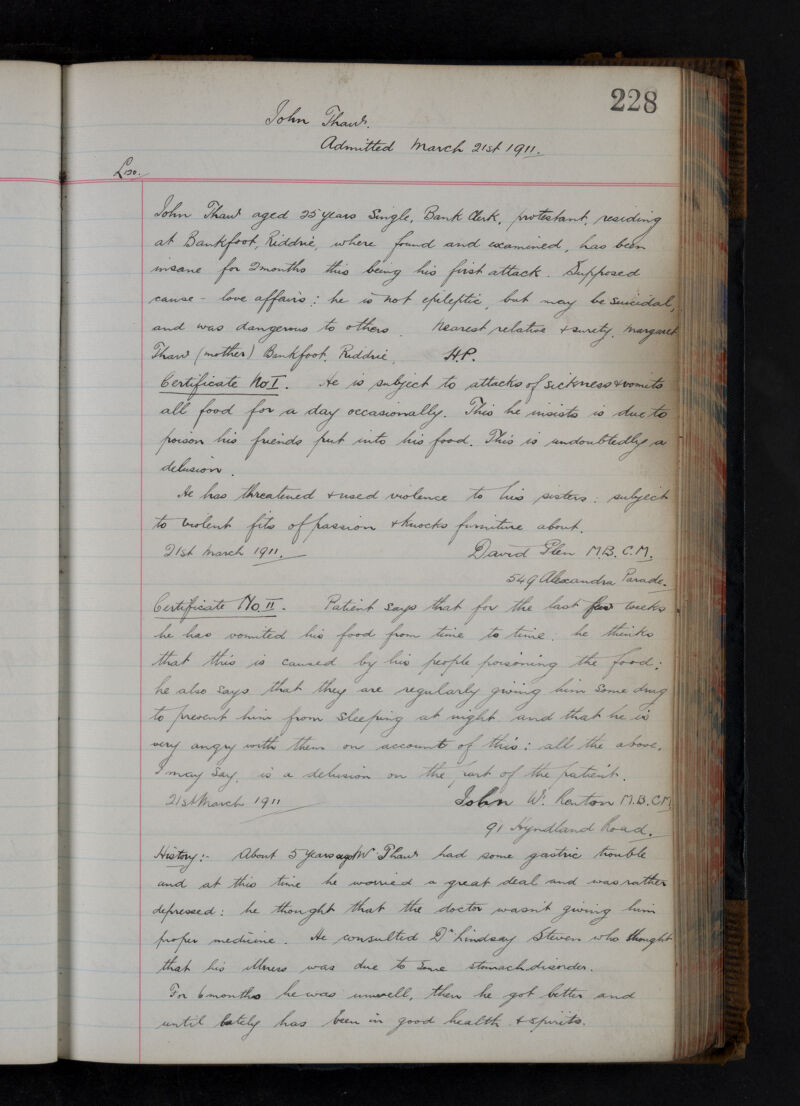 228
John Thaw.
Admitted March 21st 1911.
£50.
John Thaw aged 25 years Single, Bank Clerk, protestant, residing
at Bankfoot, Riddrie, where found and examined, has been
insane for 2 months this being his first attack. Supposed
cause - love affairs: he is not epileptic, but may be suicidal,
and was dangerous to others. Nearest relative & surety, Margaret
Thaw (mother) Bankfoot, Riddrie. H.P.
Certificate No I. He is subject to attacks of sickness & vomits
all food for a day occasionally. This he insists is due to
poison his friends put into his food. This is undoubtedly a
delusion.
He has threatened & used violence to his sisters: subject
to violent fits of passion & knocks furniture about.
21st March 1911. David Glen M.B. C.M.
549 Alexandra Parade.
Certificate No II. Patient says that for the last few weeks
he has vomited his food from time to time: he thinks
that this is caused by his people poisoning the food:
he also says that they are regularly giving him some drug
to prevent him from sleeping at night and that he is
very angry with them on account of this: all the above,
I may say, is a delusion on the part of the patient.
21st March 1911 John W. Renton M.B. C.M.
91 Hyndland Road.
History:- About 5 years ago Mr Thaw had some gastric trouble
and at this time he worried a great deal and was rather
depressed: he thought that the doctor wasn't giving him
proper medicine. He consulted Dr Lindsay Steven who thought
that his illness was due to some stomach disorder.
For 6 months he was unwell, then he got better and
until lately has been in good health & spirits.